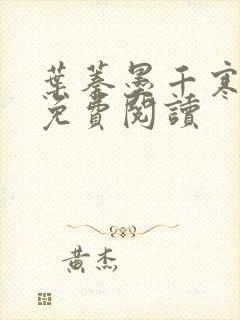 葉蓁墨千寒
免費閱讀
黃杰